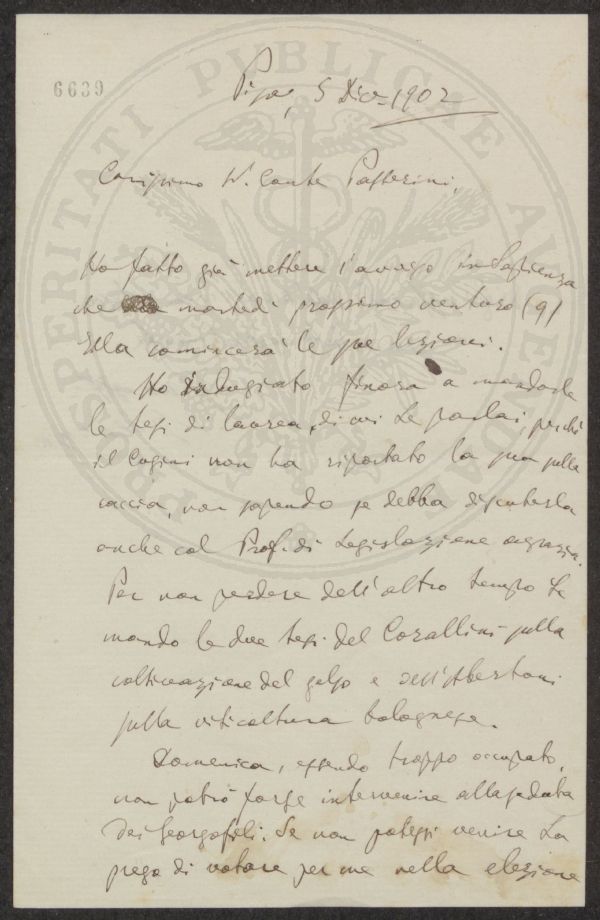 6639
Pisa, 5 Dic. 1902
Carissimo Sr. Conte Passerini,
Ho fatto già mettere l'avviso in Sapienza
che martedì prossimo venturo (9)
Ella comincerà le sue lezioni.
Ho indugiato finora a mandarle
le tesi di laurea, di cui Le parlai, perchè
il Cugini non ha riportato la sua sulla
caccia, non sapendo se debba discuterla
anche col Prof. di Legislazione agraria.
Per non perdere dell'altro tempo Le
mando le due tesi del Corallini sulla
coltivazione del gelso e dell'Abertoni
sulla viticoltura bolognese.
Domenica, essendo troppo occupato,
non potrò forse intervenire alla seduta
dei Georgofili. Se non potessi venire La
prego di votare per me nella elezione
PROSPERITATI PUBLICAE AUGENDAE